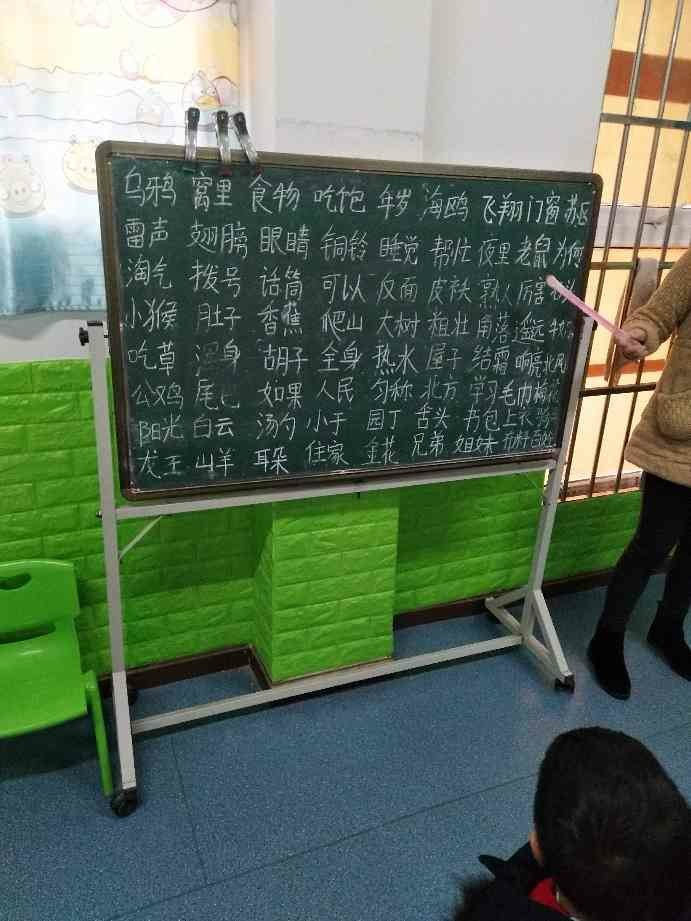 乌鸦 窝里 食物 吃饱 年岁 海鸥 飞翔 门窗 苏区
雷声 翅膀 眼睛 铜铃 睡觉 帮忙 夜里 老鼠 为何
淘气 拨号 话筒 可以 反面 皮袄 熟人 厉害
小猴 肚子 香蕉 爬山 大树 粗壮 角落 遥远
吃草 浑身 胡子 全身 热水 屋子 结霜 晌亮 北风
公鸡 尾巴 如果 人民 匀称 北方 学习 毛巾
阳光 白云 汤勺 小于 园丁 舌头 书包 上衣
龙王 山羊 耳朵 住家 金花 兄弟 姐妹